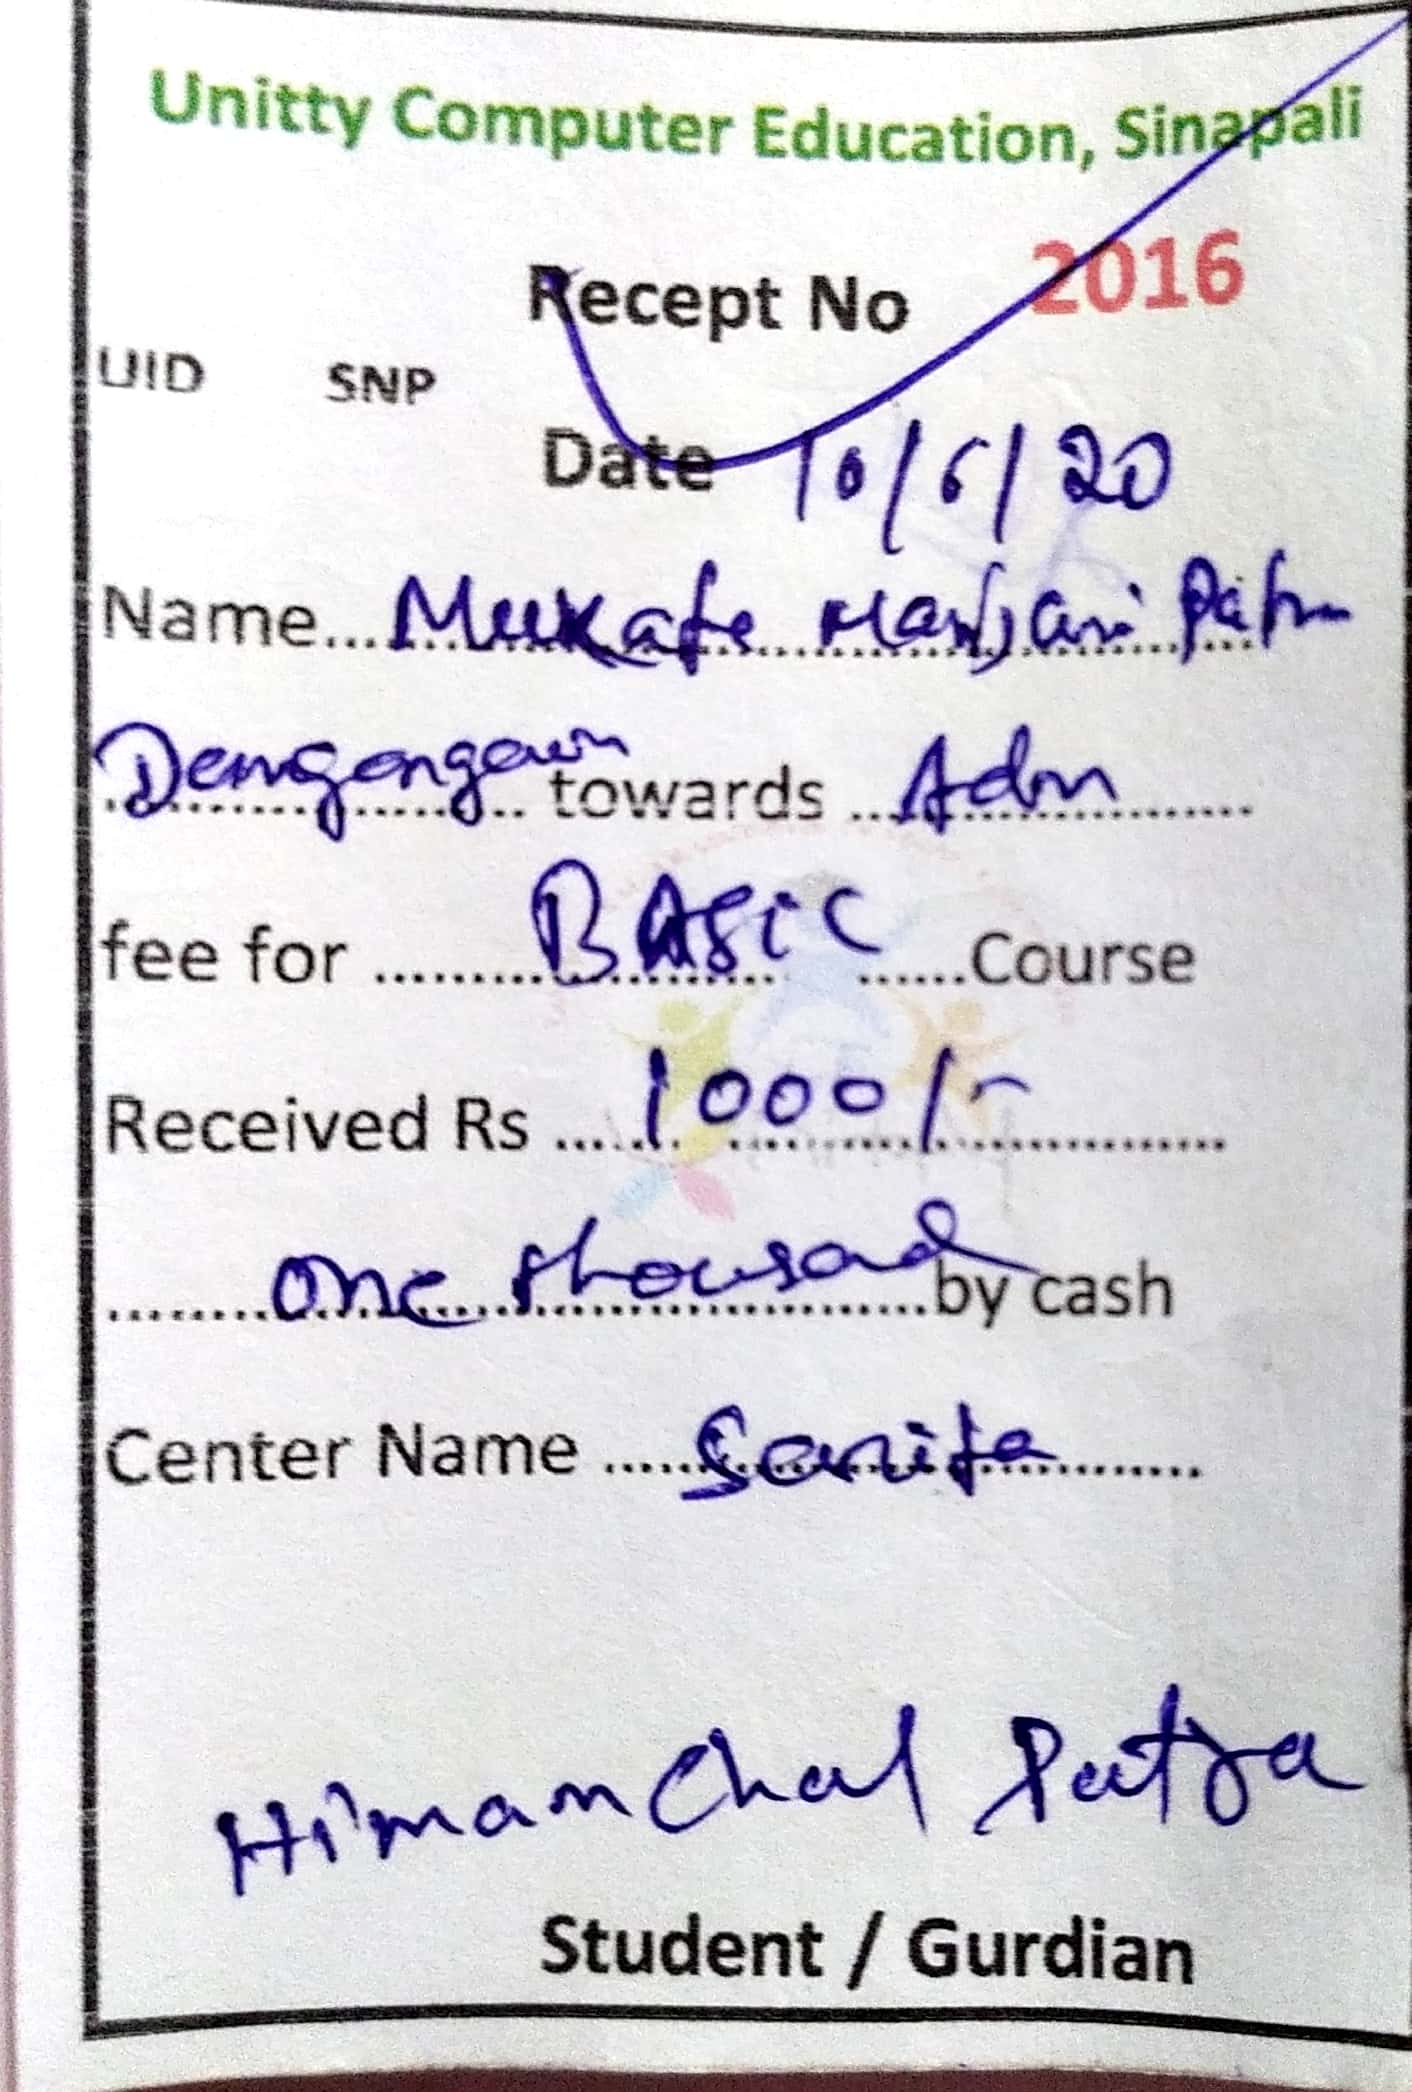 Unitty Computer Education, Sinapali
Recept No 2016
UID SNP
Date 10/6/20
Name...Mukata Manjari Patra
Demgongaun towards ...Adm
fee for ...BASIC...Course
Received Rs ...1000/-
...one thousad by cash
Center Name ...Sanita
Himanchal Patra
Student / Gurdian